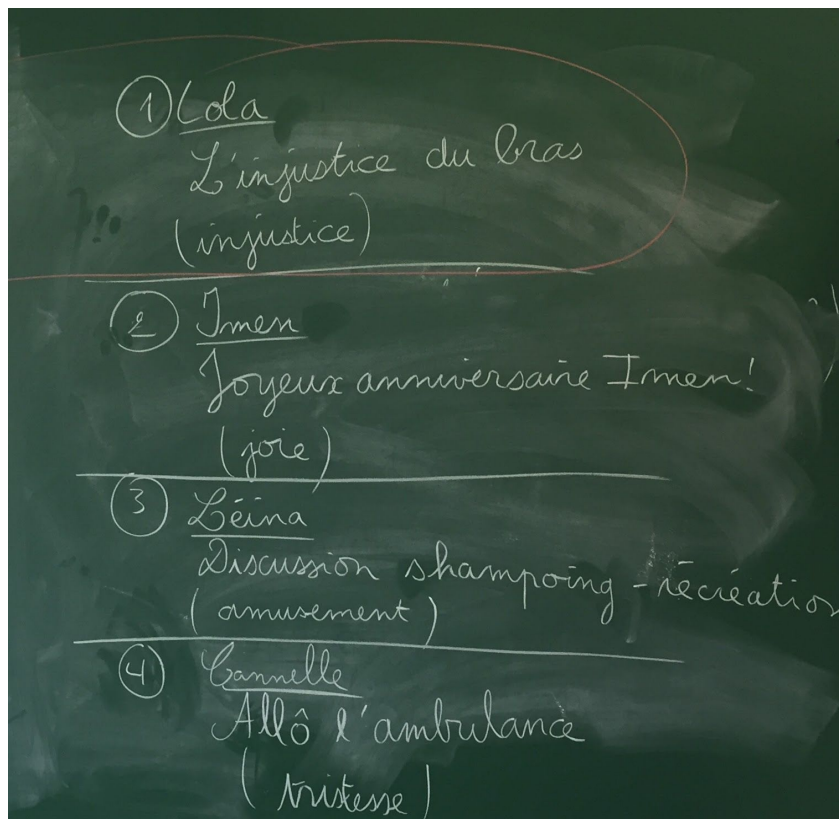 1 Lola
L'injustice du bras
(injustice)
2 Imen
Joyeux anniversaire Imen!
(joie)
3 Léina
Discussion shampoing - récréation
(amusement)
4 Cannelle
Allô l'ambulance
(tristesse)